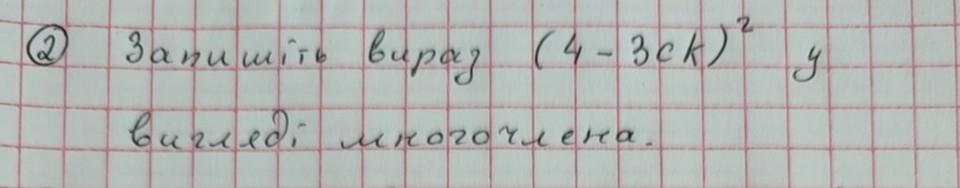 ② Запишіть вираз (4 - 3ck)² у
вигляді многочлена.